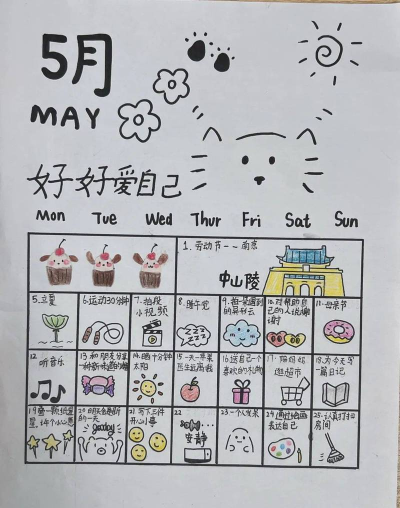 5月
MAY
好好爱自己
Mon Tue Wed Thur Fri Sat Sun
1. 劳动节--南京
中山陵
5.立夏
6.运动30分钟
7.拍段小视频
8.睡午觉
9.拍一朵遇到的异形云
10.对帮助自己的人说谢谢
11.母亲节
12 听音乐
13 和朋友分享一种新味道的糖
14.晒十分钟太阳
15.一天一苹果医生远离我
16.送自己一个喜欢的礼物
17.陪妈妈逛超市
18.为今天写一篇日记
19.叠一颗纸星星,许个小心愿
20
的一天
21.写下三件开心事
22
安静
23.一个人发呆
24.通过绘画表达自己
25.认真打扫房间